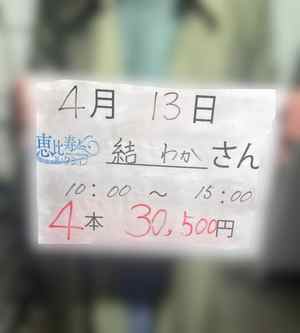 4月 13日
恵比寿 結 わか さん
10:00 ～ 15:00
4本 30,500円